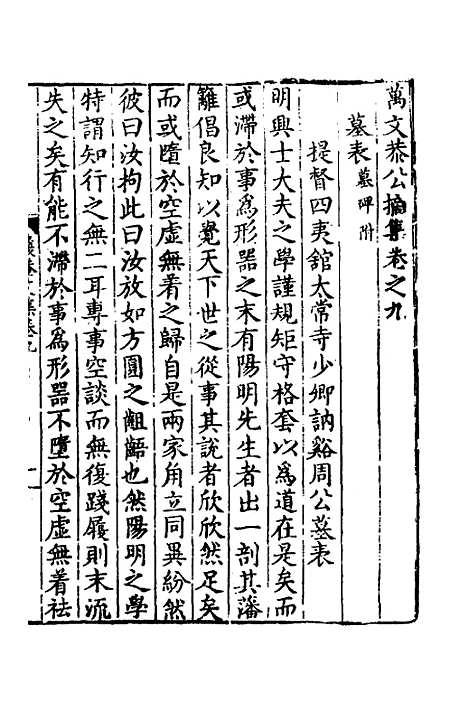 萬文恭公摘集卷之九
墓表墓碑附
提督四夷舘太常寺少卿訥谿周公墓表
明興士大夫之學謹規矩守格套以爲道在是矣而
或滯於事爲形器之末有陽明先生者出一剖其藩
籬倡良知以覺天下世之從事其說者欣欣然足矣
而或墮於空虛無着之歸自是兩家角立同異紛然
彼曰汝拘此曰汝放如方圓之齟齬也然陽明之學
特謂知行之無二耳專事空談而無復踐履則末流
失之矣有能不滯於事爲形器不墮於空虛無着祛